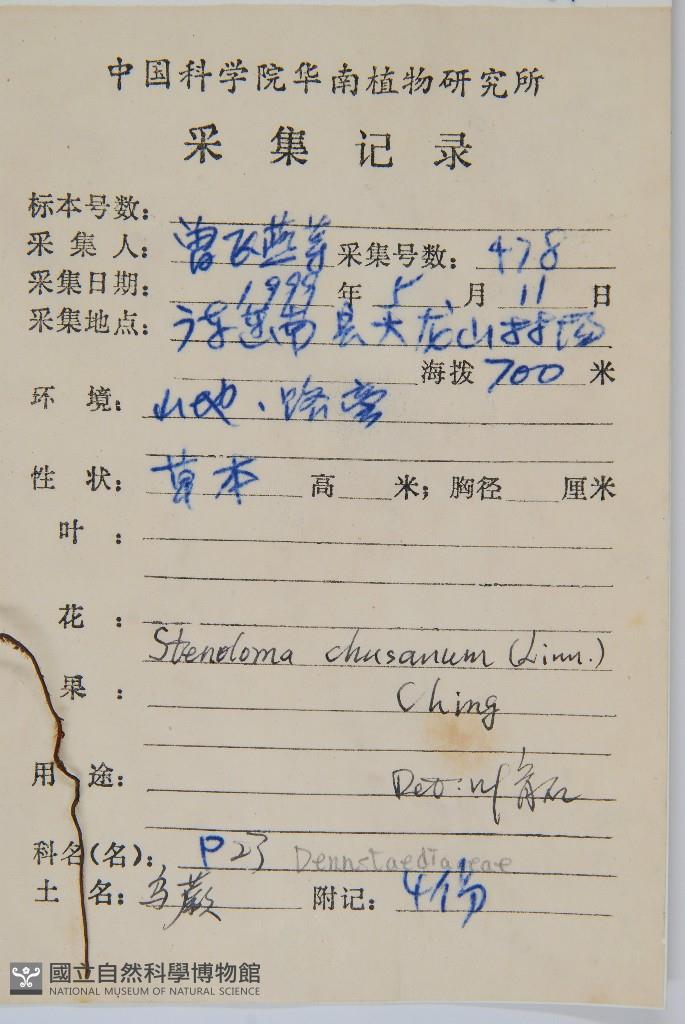 中国科学院华南植物研究所
采集记录
标本号数:
采集人: 曾飞燕等 采集号数: 478
采集日期: 1999 年 5 月 11 日
采集地点: 连南县大龙山林场
海拨 700 米
环境: 山地、路旁
性状: 草本 高 米; 胸径 厘米
叶:
花:
Stenoloma chusanum (Linn.)
果: Ching
用途: Det: 叶
科名(名): P23 Dennstaedtiaceae
土名: 乌蕨 附记: 4份
國立自然科學博物館
NATIONAL MUSEUM OF NATURAL SCIENCE